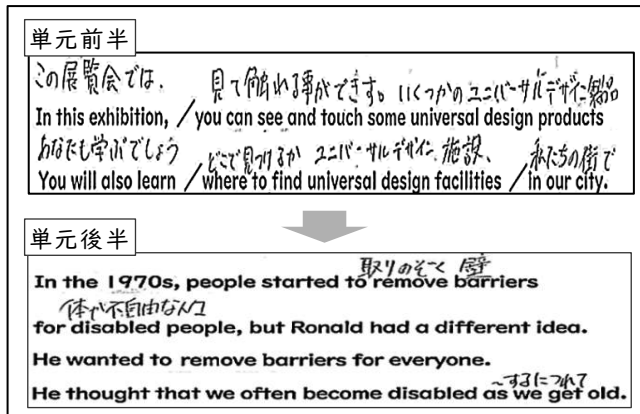 単元前半
この展覧会では、 見て触れる事ができます。 いくつかのユニバーサルデザイン製品
In this exhibition, / you can see and touch some universal design products
あなたも学ぶでしょう どこで見つけるか ユニバーサルデザイン 施設、 私たちの街で
You will also learn / where to find universal design facilities / in our city.
単元後半
取りのぞく 壁
In the 1970s, people started to remove barriers
体で不自由な人
for disabled people, but Ronald had a different idea.
He wanted to remove barriers for everyone.
～するにつれて
He thought that we often become disabled as we get old.